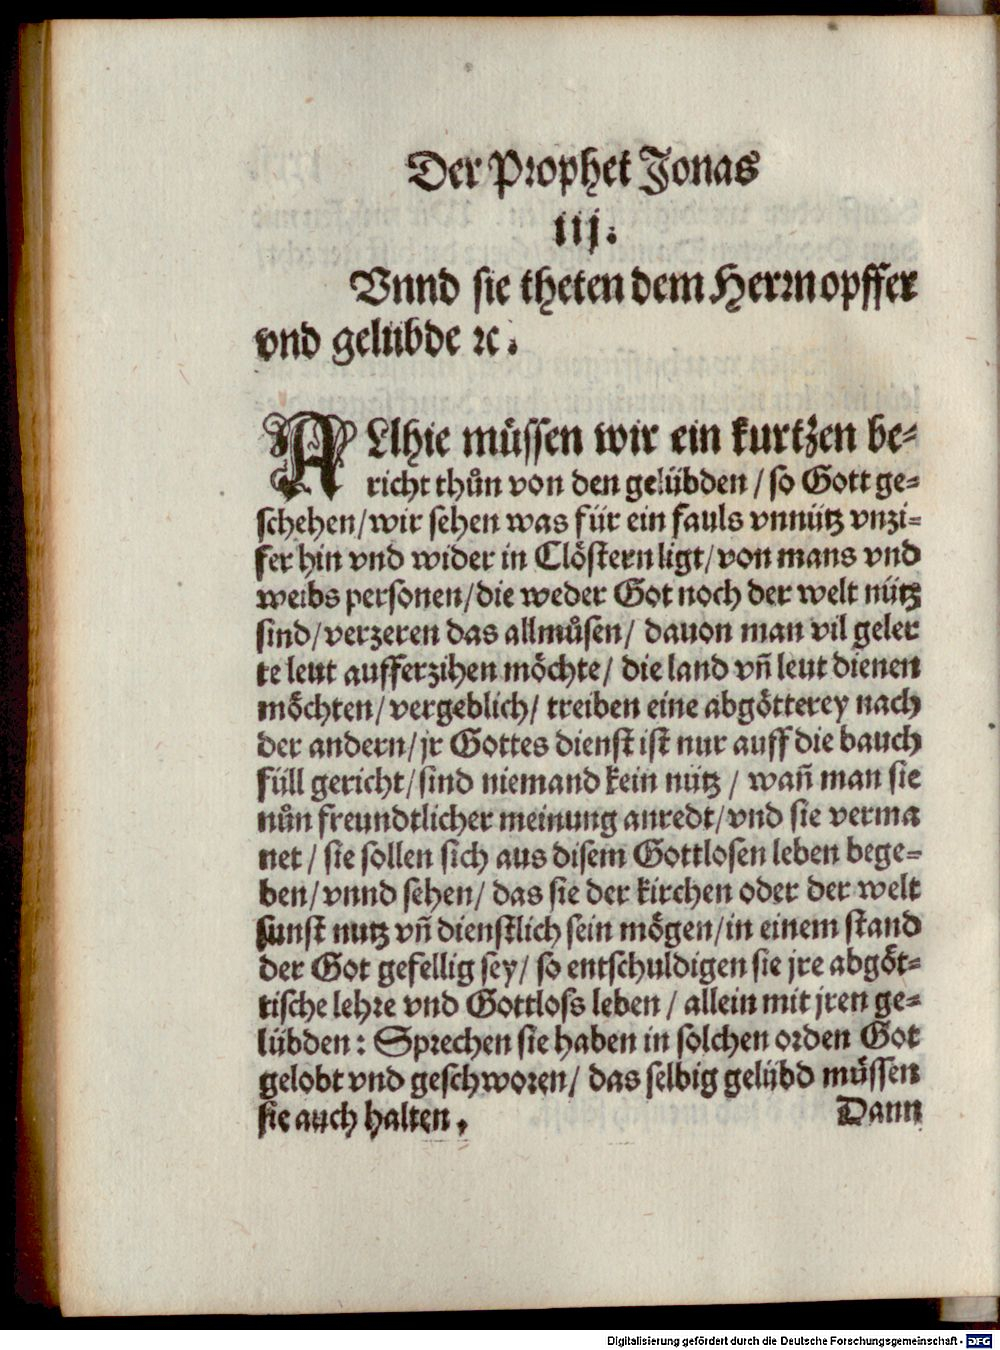 Der Prophet Jonas
iij.
Vnnd sie theten dem Herrn opffer
vnd gelübde ꝛc.
ALlhie müssen wir ein kurtzen be-
richt thůn von den gelübden / so Gott ge-
schehen / wir sehen was für ein fauls vnnütz vnzi-
fer hin vnd wider in Clöstern ligt / von mans vnd
weibs personen / die weder Got noch der welt nütz
sind / verzeren das allmůsen / dauon man vil geler
te leut aufferzihen möchte / die land vñ leut dienen
möchten / vergeblich / treiben eine abgötterey nach
der andern / jr Gottes dienst ist nur auff die bauch
füll gericht / sind niemand kein nütz / wañ man sie
nůn freundtlicher meinung anredt / vnd sie verma
net / sie sollen sich aus disem Gottlosen leben bege-
ben / vnnd sehen / das sie der kirchen oder der welt
sunst nutz vñ dienstlich sein mögen / in einem stand
der Got gefellig sey / so entschuldigen sie jre abgöt-
tische lehre vnd Gottloss leben / allein mit jren ge-
lübden : Sprechen sie haben in solchen orden Got
gelobt vnd geschworen / das selbig gelübd müssen
sie auch halten.
Dann
Digitalisierung gefördert durch die Deutsche Forschungsgemeinschaft - DFG